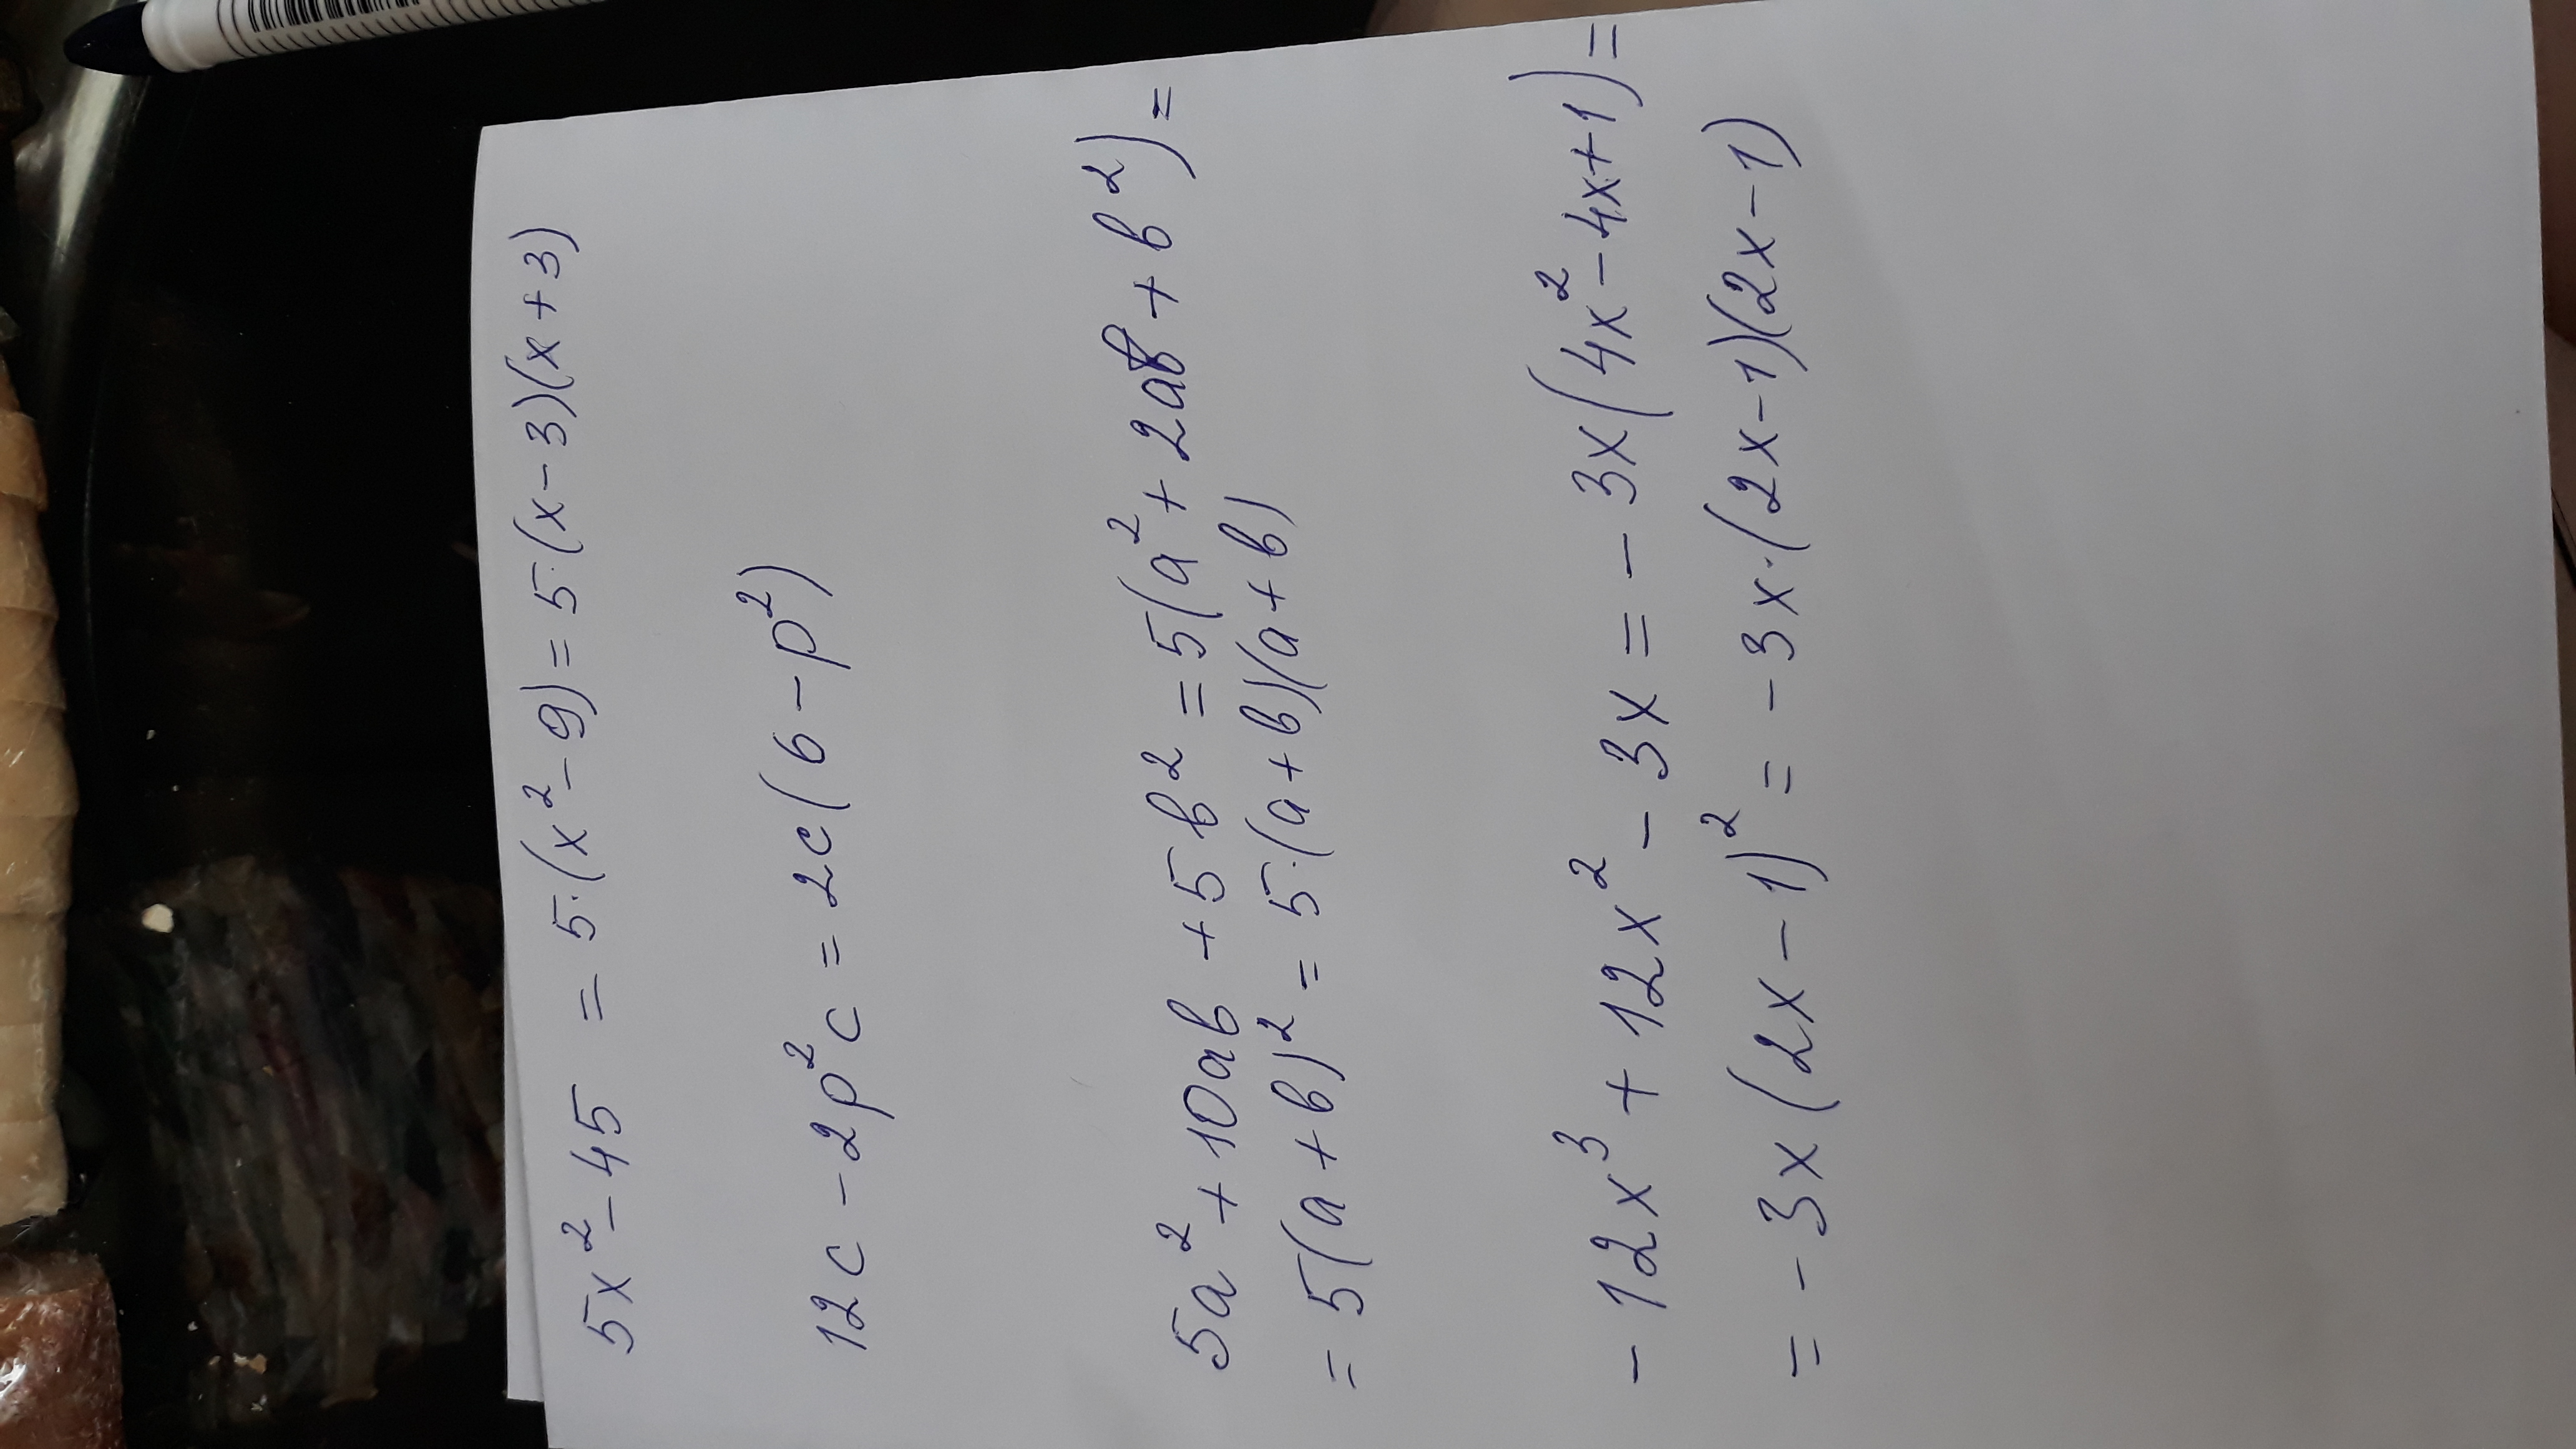 5x² - 45 = 5·(x² - 9) = 5·(x - 3)(x + 3)
12c - 2p²c = 2c(6 - p²)
5a² + 10ab + 5b² = 5(a² + 2ab + b²) =
= 5(a + b)² = 5·(a + b)(a + b)
- 12x³ + 12x² - 3x = - 3x(4x² - 4x + 1) =
= - 3x(2x - 1)² = - 3x·(2x - 1)(2x - 1)